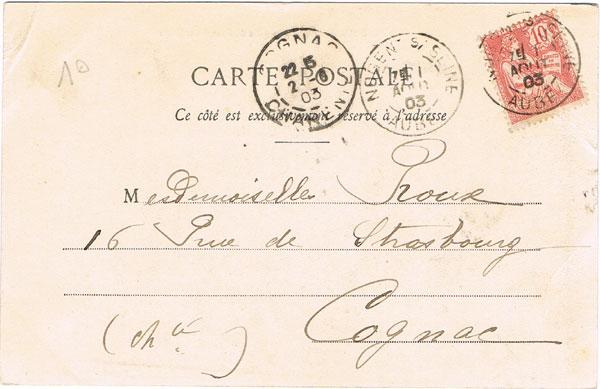 10
COGNAC
22 15
2 - 8
03
CHARENTE
NOGENT S/SEINE
7E 1
AOUT
03
AUBE
10
7E 1
AOUT
03
AUBE
CARTE POSTALE
Ce côté est exclusivement réservé à l'adresse
Mesdemoiselles Roux
16 Rue de Strasbourg
Cognac
(Chte)